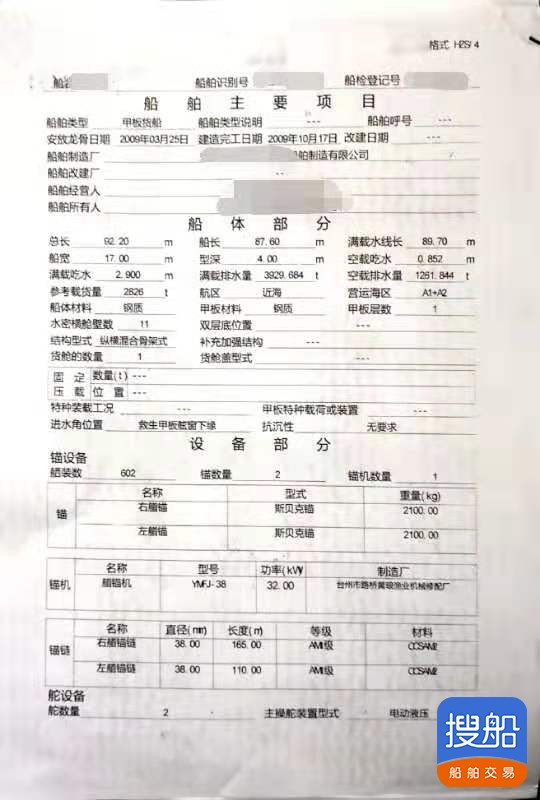 格式 HZS/4
船舶识别号 船检登记号
船舶主要项目
船舶类型 甲板货船 船舶类型说明 --- 船舶呼号 ---
安放龙骨日期 2009年03月25日 建造完工日期 2009年10月17日 改建日期 ---
船舶制造厂 船舶制造有限公司
船舶改建厂 --
船舶经营人
船舶所有人
船体部分
总长 92.20 m 船长 87.60 m 满载水线长 89.70 m
船宽 17.00 m 型深 4.00 m 空载吃水 0.852 m
满载吃水 2.900 m 满载排水量 3929.684 t 空载排水量 1261.844 t
参考载货量 2826 t 航区 近海 营运海区 A1+A2
船体材料 钢质 甲板材料 钢质 甲板层数 1
水密横舱壁数 11 双层底位置 ---
结构型式 纵横混合骨架式 补充加强结构 ---
货舱的数量 1 货舱盖型式 ---
固定 数量(t) ---
压载 位置 ---
特种装载工况 --- 甲板特种载荷或装置 ---
进水角位置 救生甲板舷窗下缘 抗沉性 无要求
设备部分
锚设备
舾装数 602 锚数量 2 锚机数量 1
名称 型式 重量(kg)
锚 右艏锚 斯贝克锚 2100.00
左艏锚 斯贝克锚 2100.00
名称 型号 功率(kW) 制造厂
锚机 艏锚机 YMFJ-38 32.00 台州市路桥黄琅渔业机械修配厂
名称 直径(mm) 长度(m) 等级 材料
锚链 右艏锚链 38.00 165.00 AM2级 CCSAM2
左艏锚链 38.00 110.00 AM2级 CCSAM2
舵设备
舵数量 2 主操舵装置型式 电动液压
搜船
船舶交易